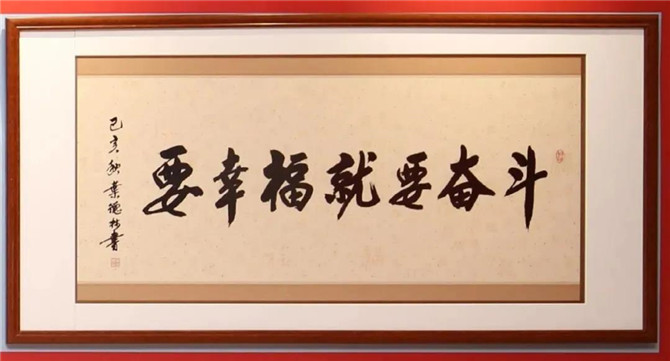 要幸福就要奋斗
己亥秋叶德松书